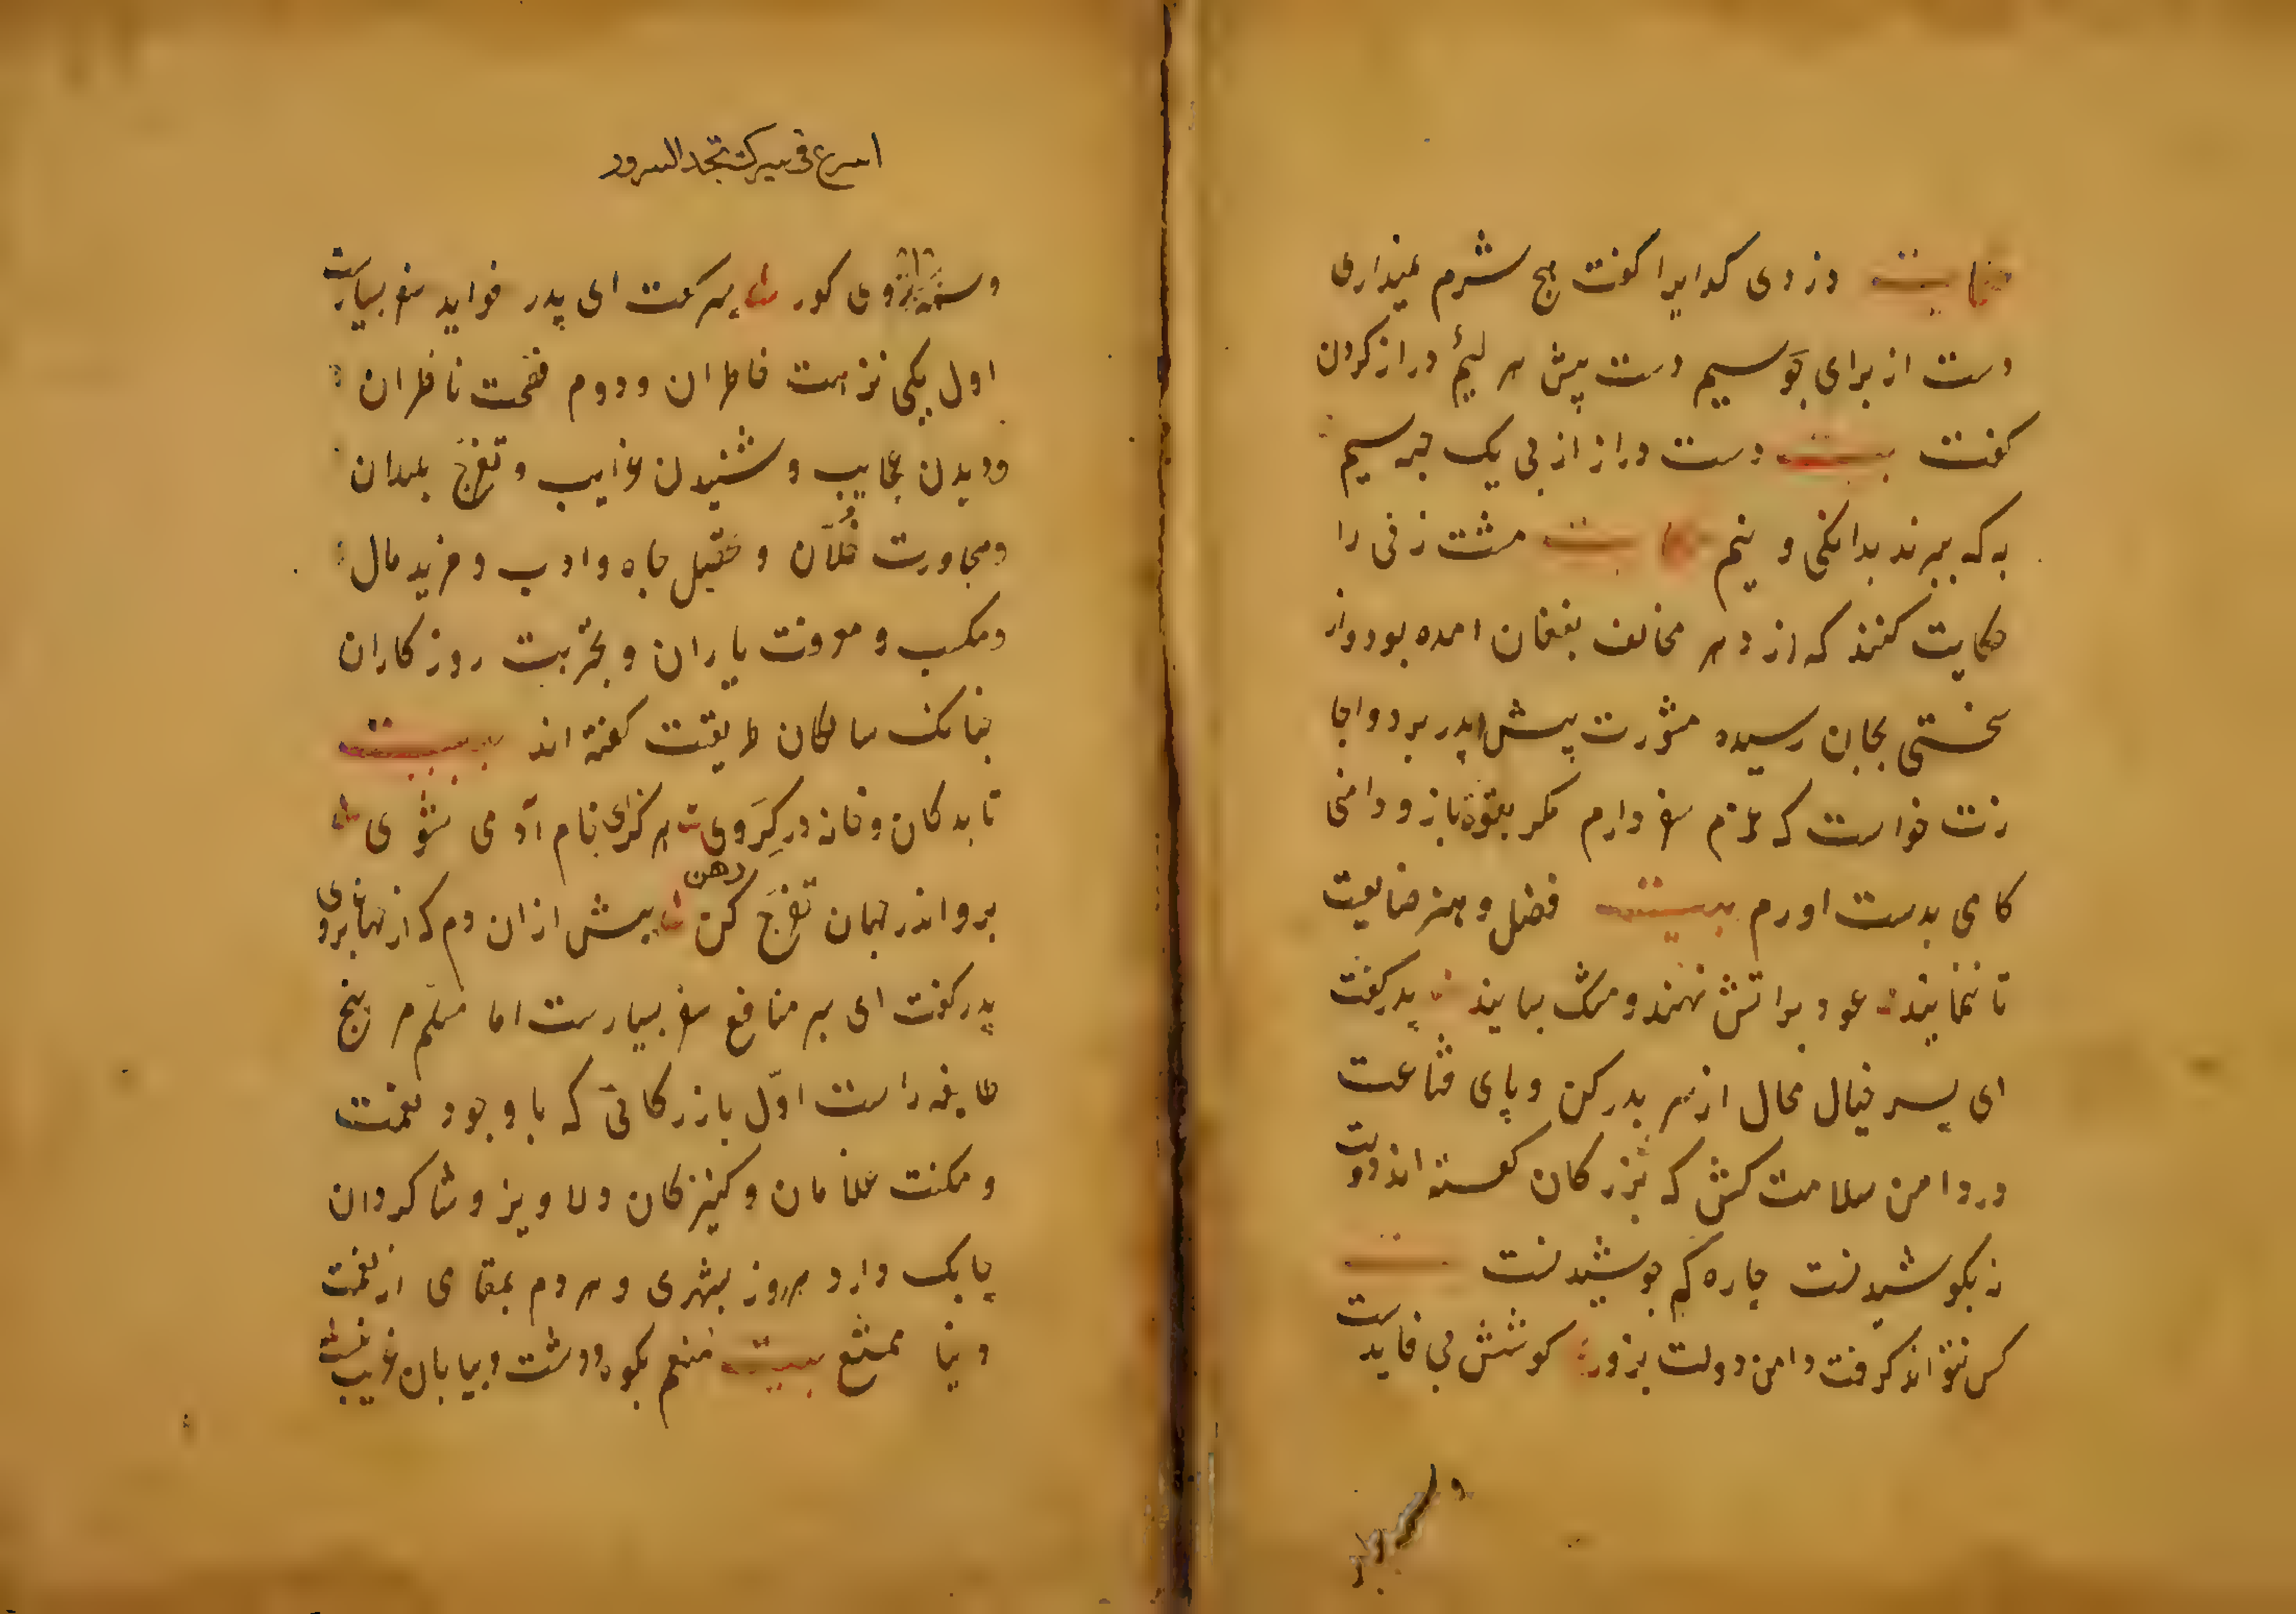 حکایت دزدی کدایرا کفت هیچ شرم نمیداری
دست از برای جو سیم دست پیش هر لئیم دراز کردن
کفت بیت دست دراز از پی یک حبه سیم
به که ببرند بدانکی و نیم حکایت مشت زنی را
حکایت کنند که از دهر مخالف بفغان امده بود و از
سختی بجان رسیده مشورت پیش پدر برد و اجا
زت خواست که عزم سفر دارم مکر بقوة بازو دامنی
کامی بدست اورم بیت فضل و هنر ضایعیت
تا ننمایند عود براتش نهند و مشک بسایند پدر کفت
ای پسر خیال محال از سر بدر کن و پای قناعت
در دامن سلامت کش که بزرکان کفته اند دولت
نه بکوشیدنت چاره کم جوشیدنت
کس نتواند کرفت دامن دولت بزور کوشش بی فایدست
اسرع فی سیرک تجد السرور
وسمه بر ابروی کور پسر کفت ای پدر فواید سفر بسیارست
اول یکی نزهت خاطران و دوم نافطران
و دیدن عجایب و شنیدن غرایب و تفرج بلدان
و مجاورت خلان و تحصیل جاه و ادب و مزید مال
و مکسب و معرفت یاران و تجربت روزکاران
چنانک سالکان طریقت کفته اند بیت
تا بدکان و خانه در کروی هرکز ای خام آدمی نشوی
برو اندر جهان تفرج کن پیش ازان دم که از جهان بروی
پدر کفت ای پسر منافع سفر بسیارست اما مسلم مر پنج
طایفه راست اول بازرکانی که با وجود نعمت
و مکنت غلامان و کنیزکان دلاویز و شاکردان
چابک دارد هر روز بشهری و هر دم بمقامی از نعمت
دنیا ممتع بیت منعم بکوه و دشت و بیابان غریب نیست